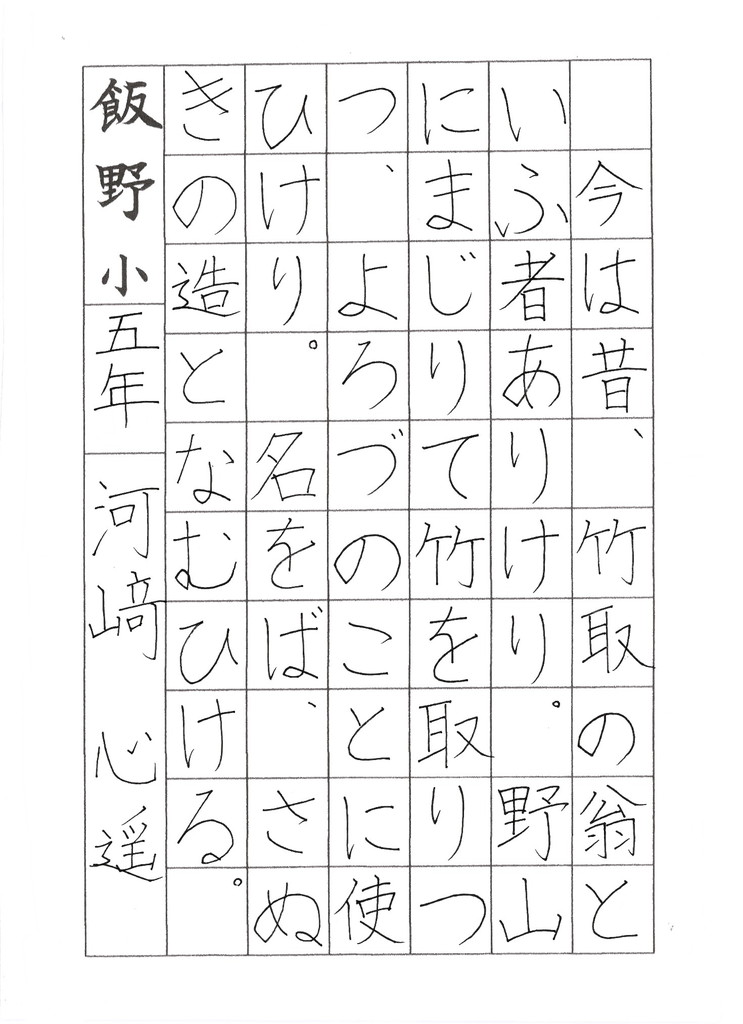 今は昔、竹取の翁と
いふ者ありけり。野山
にまじりて竹を取りつ
つ、よろづのことに使
ひけり。名をば、さぬ
きの造となむひける。
飯野小五年 河﨑 心遥